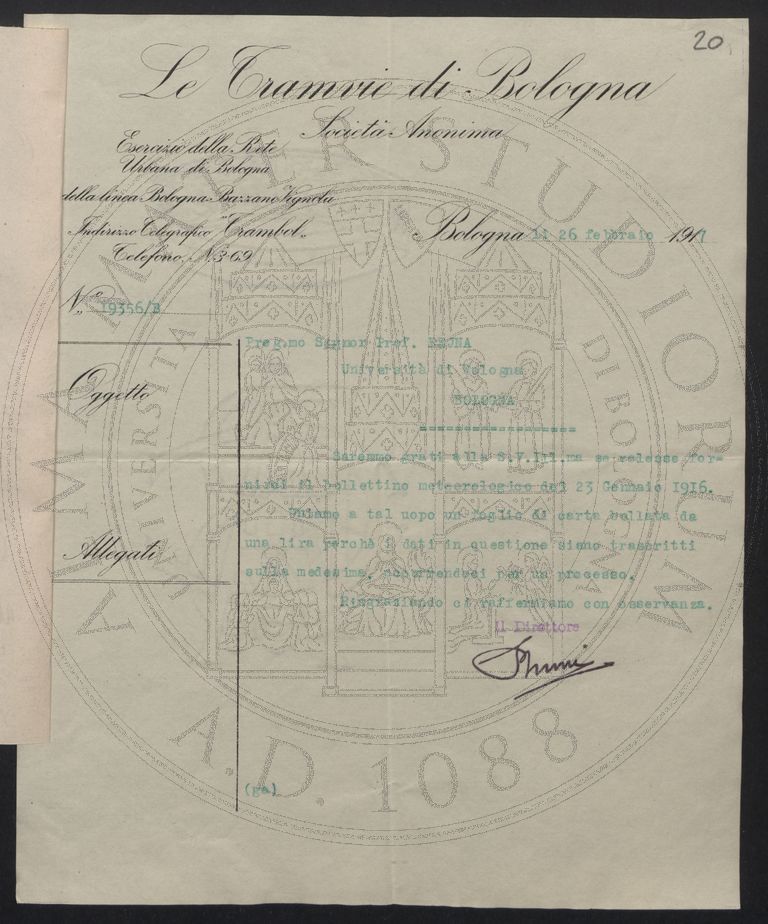 20
Le Tramvie di Bologna
Società Anonima
Esercizio della Rete
Urbana di Bologna
della linea Bologna-Bazzano-Vignola
Indirizzo Telegrafico "Trambol"
Telefono, N. 3-69
Bologna li 26 febbraio 1917
N.° 19356/B
Preg.mo Signor Prof. REJNA
Università di Bologna
BOLOGNA
==================
Oggetto
Saremmo grati alla S.V.Ill.ma se volesse for-
nirci il bollettino meteorologico del 23 Gennaio 1916.
Uniamo a tal uopo un foglio di carta bollata da
una lira perchè i dati in questione siano trascritti
sulla medesima, occorrendoci per un processo.
Ringraziando ci raffermiamo con osservanza.
Allegati
Il Direttore
(ga)
ALMA MATER STUDIORUM
UNIVERSITA DI BOLOGNA
A.D. 1088